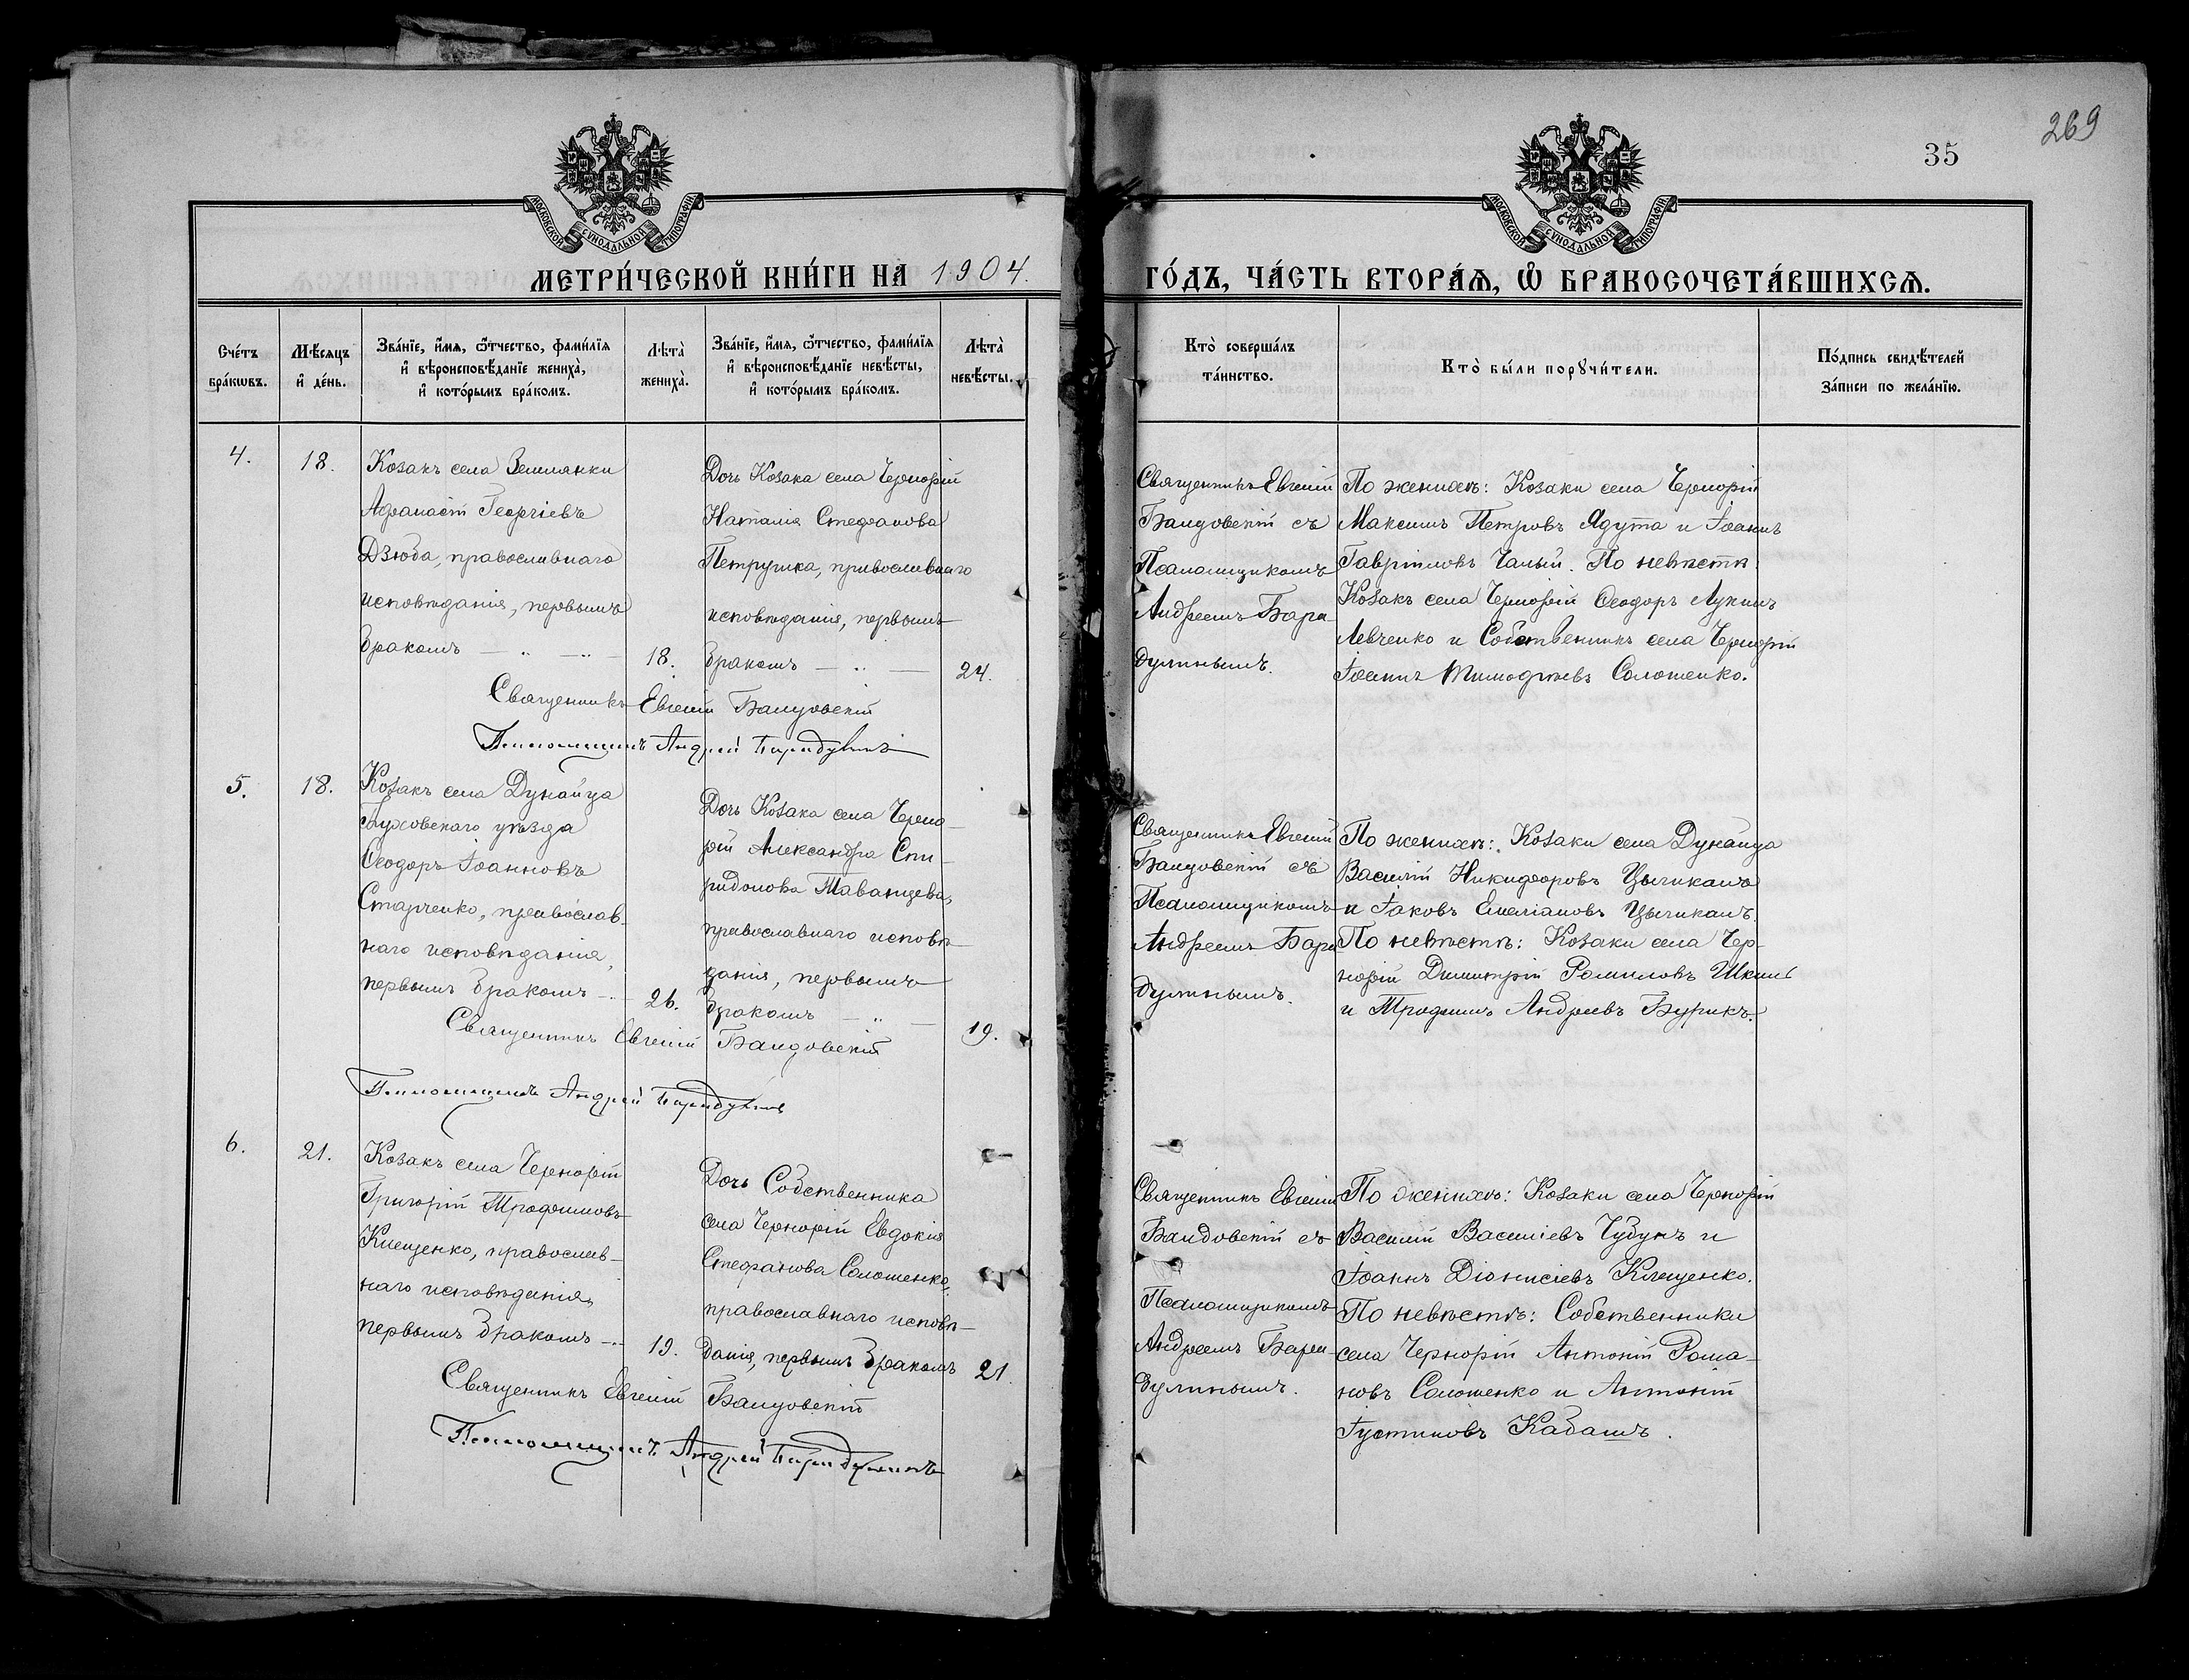 269
35
МОСКОВСКОЙ СѴНОДАЛЬНОЙ ТИПОГРАФІИ
МОСКОВСКОЙ СѴНОДАЛЬНОЙ ТИПОГРАФІИ
МЕТРИ́ЧЕСКОЙ КНИ́ГИ НА 1904.
ГО́ДЪ, ЧА́СТЬ ВТОРА́Ѧ, Ѡ҆ БРАКОСОЧЕТА́ВШИХСѦ.
Сче́тъ
бра́кѡвъ.
Мѣ́сѧцъ
и҆ де́нь.
Зва́нїе, и҆́мѧ, ѻ҆́тчество, фами́лїѧ
и҆ вѣроисповѣ́данїе жениха̀,
и҆ кото́рымъ бра́комъ.
Лѣта̀
жениха̀.
Зва́нїе, и҆́мѧ, ѻ҆́тчество, фами́лїѧ
и҆ вѣроисповѣ́данїе невѣ́сты,
и҆ кото́рымъ бра́комъ.
Лѣта̀
невѣ́сты.
Кто̀ соверша́лъ
та́инство.
Кто̀ бы́ли порꙋчи́тели.
По́дпись свидѣ́телей
за́писи по жела́нїю.
4.
18.
Козакъ села Землянки
Аѳанасій Георгіевъ
Дзюба, православнаго
исповѣданія, первымъ
бракомъ — „ — „ —
18.
Дочь Козака села Черторій
Наталія Стефанова
Петрушка, православнаго
исповѣданія, первымъ
бракомъ — „ —
24.
Священникъ Евгеній
Бандовскій съ
Псаломщикомъ
Андреемъ Бара-
дулинымъ.
По женихѣ: Козаки села Черторій
Максимъ Петровъ Ядута и Іоаннъ
Гавріиловъ Чалый. По невѣстѣ:
Козакъ села Черторій Ѳеодоръ Лукинъ
Левченко и Собственникъ села Черторій
Іоаннъ Тимофѣевъ Солошенко.
Священникъ Евгеній Бандовскій
Псаломщикъ Андрей Барадулинъ
5.
18.
Козакъ села Дунайца
Глуховскаго уѣзда
Ѳеодоръ Іоанновъ
Старченко, православ-
наго исповѣданія,
первымъ бракомъ — „
26.
Дочь Козака села Черто-
рій Александра Спи-
ридонова Таванцева,
православнаго исповѣ-
данія, первымъ
бракомъ — „ —
19.
Священникъ Евгеній
Бандовскій съ
Псаломщикомъ
Андреемъ Бара-
дулинымъ.
По женихѣ: Козаки села Дунайца
Василій Никифоровъ Цыганъ
и Іаковъ Емеліановъ Цыганъ.
По невѣстѣ: Козаки села Чер-
торій Димитрій Романовъ
и Трофимъ Андреевъ Бурикъ.
Священникъ Евгеній Бандовскій
Псаломщикъ Андрей Барадулинъ
6.
21.
Козакъ села Черторій
Григорій Трофимовъ
Клещенко, православ-
наго исповѣданія,
первымъ бракомъ — „
19.
Дочь Собственника
села Черторій Евдокія
Стефанова Солошенко,
православнаго исповѣ-
данія, первымъ бракомъ
21.
Священникъ Евгеній
Бандовскій съ
Псаломщикомъ
Андреемъ Бара-
дулинымъ.
По женихѣ: Козаки села Черторій
Василій Василіевъ Чубунъ и
Іоаннъ Діонисіевъ Клещенко.
По невѣстѣ: Собственники
села Черторій Антоній Рома-
новъ Солошенко и Антоній
Іустиновъ Кабашъ.
Священникъ Евгеній Бандовскій
Псаломщикъ Андрей Барадулинъ